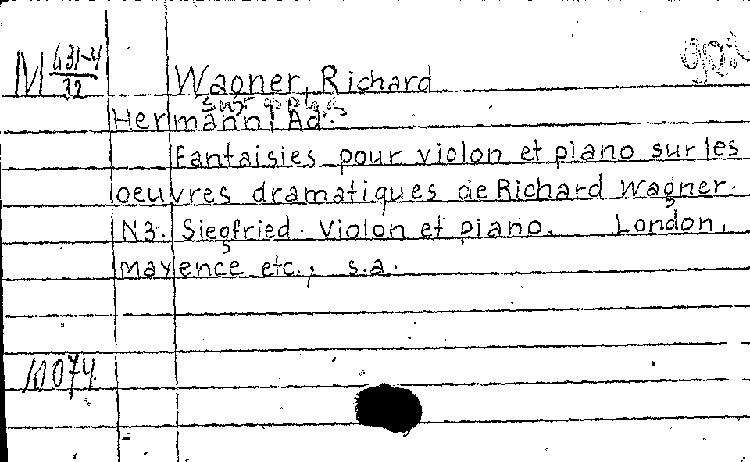 M 431-4
32
Wagner, Richard
Hermann, Ad.
Fantaisies pour violon et piano sur les
oeuvres dramatiques de Richard Wagner.
N3. Siegfried. Violon et piano. London,
Mayence etc., s.a.
10074